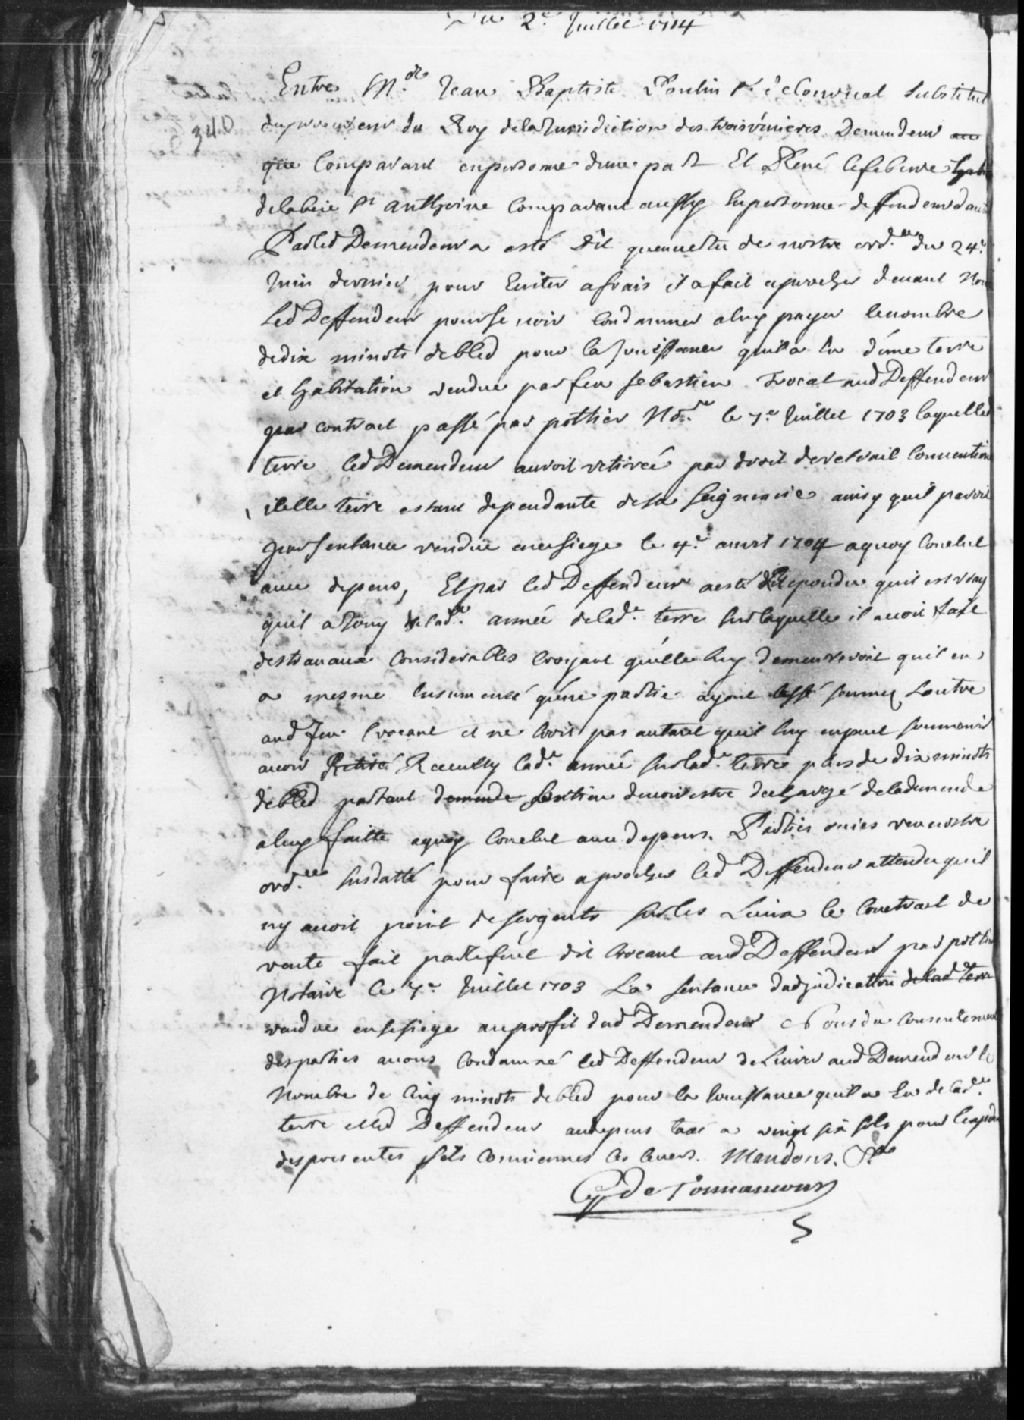 Du 2e Juillet 1714
340
Entre Mre Jean Baptiste Poulin Sr Conseial substitut
du procureur du Roy de la Jurisdiction des trois rivieres Demandeur
Comparant en personne d'une part Et René Lefebvre habt
de la baie St anthoine Comparant aussy En personne deffendeur d'aut
Par led Demandeur a esté Dit qu'en vertu de nostre ord.ce du 24e
Juin dernier, pour Eviter a frais il a fait aprocher devant Nous
Led Deffendeur pour se voir Condamner a luy payer le nombre
de dix minots de bled pour la Jouissance qu'il a Eu d'une terre
et habitation vendue par feu Sebastien audt Deffendeur
par contract passé par pottier Note le 7e Juillet 1703 laquelle
terre led Demandeur auroit retirée par droit de retrait Conventionel
icelle terre estant dependante de sa Seigneurie ainsy qu'il paroit
par sentence rendue en ce siege le 4e avril 1704 a quoy Conclut
avec depens, Et par led Deffendeur a esté Repondu qu'il est vray
qu'il a Jouy lade année de lade terre sur laquelle il avoit fait
des travaux Considerables croyant qu'elle luy demeureroit qu'il en
a mesme partie ayant
aud feu et ne Croit pas autant qu'il luy
avoir Retiré Recueilly lade année sur lade terre plus de dix minots
de bled partant demande d'estre dechargé de la demande
a luy faitte a quoy Conclut avec depens. Parties ouies veu nostre
ord.ce susdatté pour faire aprocher led Deffendeur attendu qu'il
ny avoit point de sergents sur les Lieux le Contract de
vente fait par le feu dit aud Deffendeur par pottier
Notaire le 7e Juillet 1703 La sentence d'adjudication de lad terre
rendue en ce siege au profit dud Demandeur Nous du Consentement
des parties avons Condamné led Deffendeur de Livrer aud Demandeur le
Nombre de Cinq minots de bled pour la Jouissance qu'il a Eu de lade
terre et led Deffendeur aux depens taxé a vingt six sols pour
des presentes Mandons. &c
G de Tonnancour